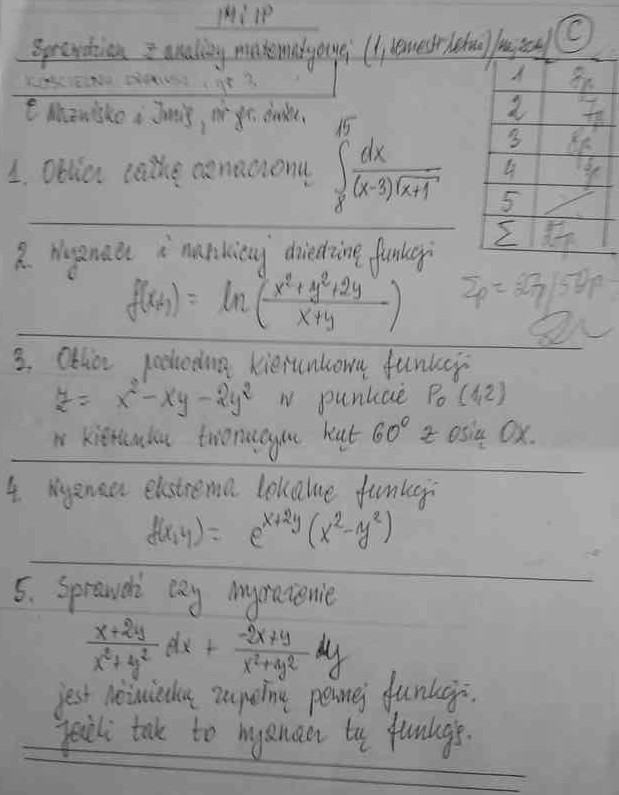 IM i IP
Sprawdzian z analizy matematycznej (1, semestr letni)
C
Nazwisko i Imię, nr gr. ćwicz.
1 8p
2 7p
3 8p
4
5
Σ 27p
1. Oblicz całkę oznaczoną ∫₈¹⁵ dx / ((x-3)√(x+1))
2. Wyznacz i naszkicuj dziedzinę funkcji
f(x,y) = ln( (x²+y²+2y) / (x+y) )
3. Oblicz pochodną kierunkową funkcji
z = x² - xy - 2y² w punkcie P₀ (1,2)
w kierunku tworzącym kąt 60° z osią OX.
4. Wyznacz ekstrema lokalne funkcji
f(x,y) = e^(x+2y) (x² - y²)
5. Sprawdź czy wyrażenie
(x+2y)/(x²+y²) dx + (-2x+y)/(x²+y²) dy
jest różniczką zupełną pewnej funkcji.
Jeżeli tak to wyznacz tę funkcję.